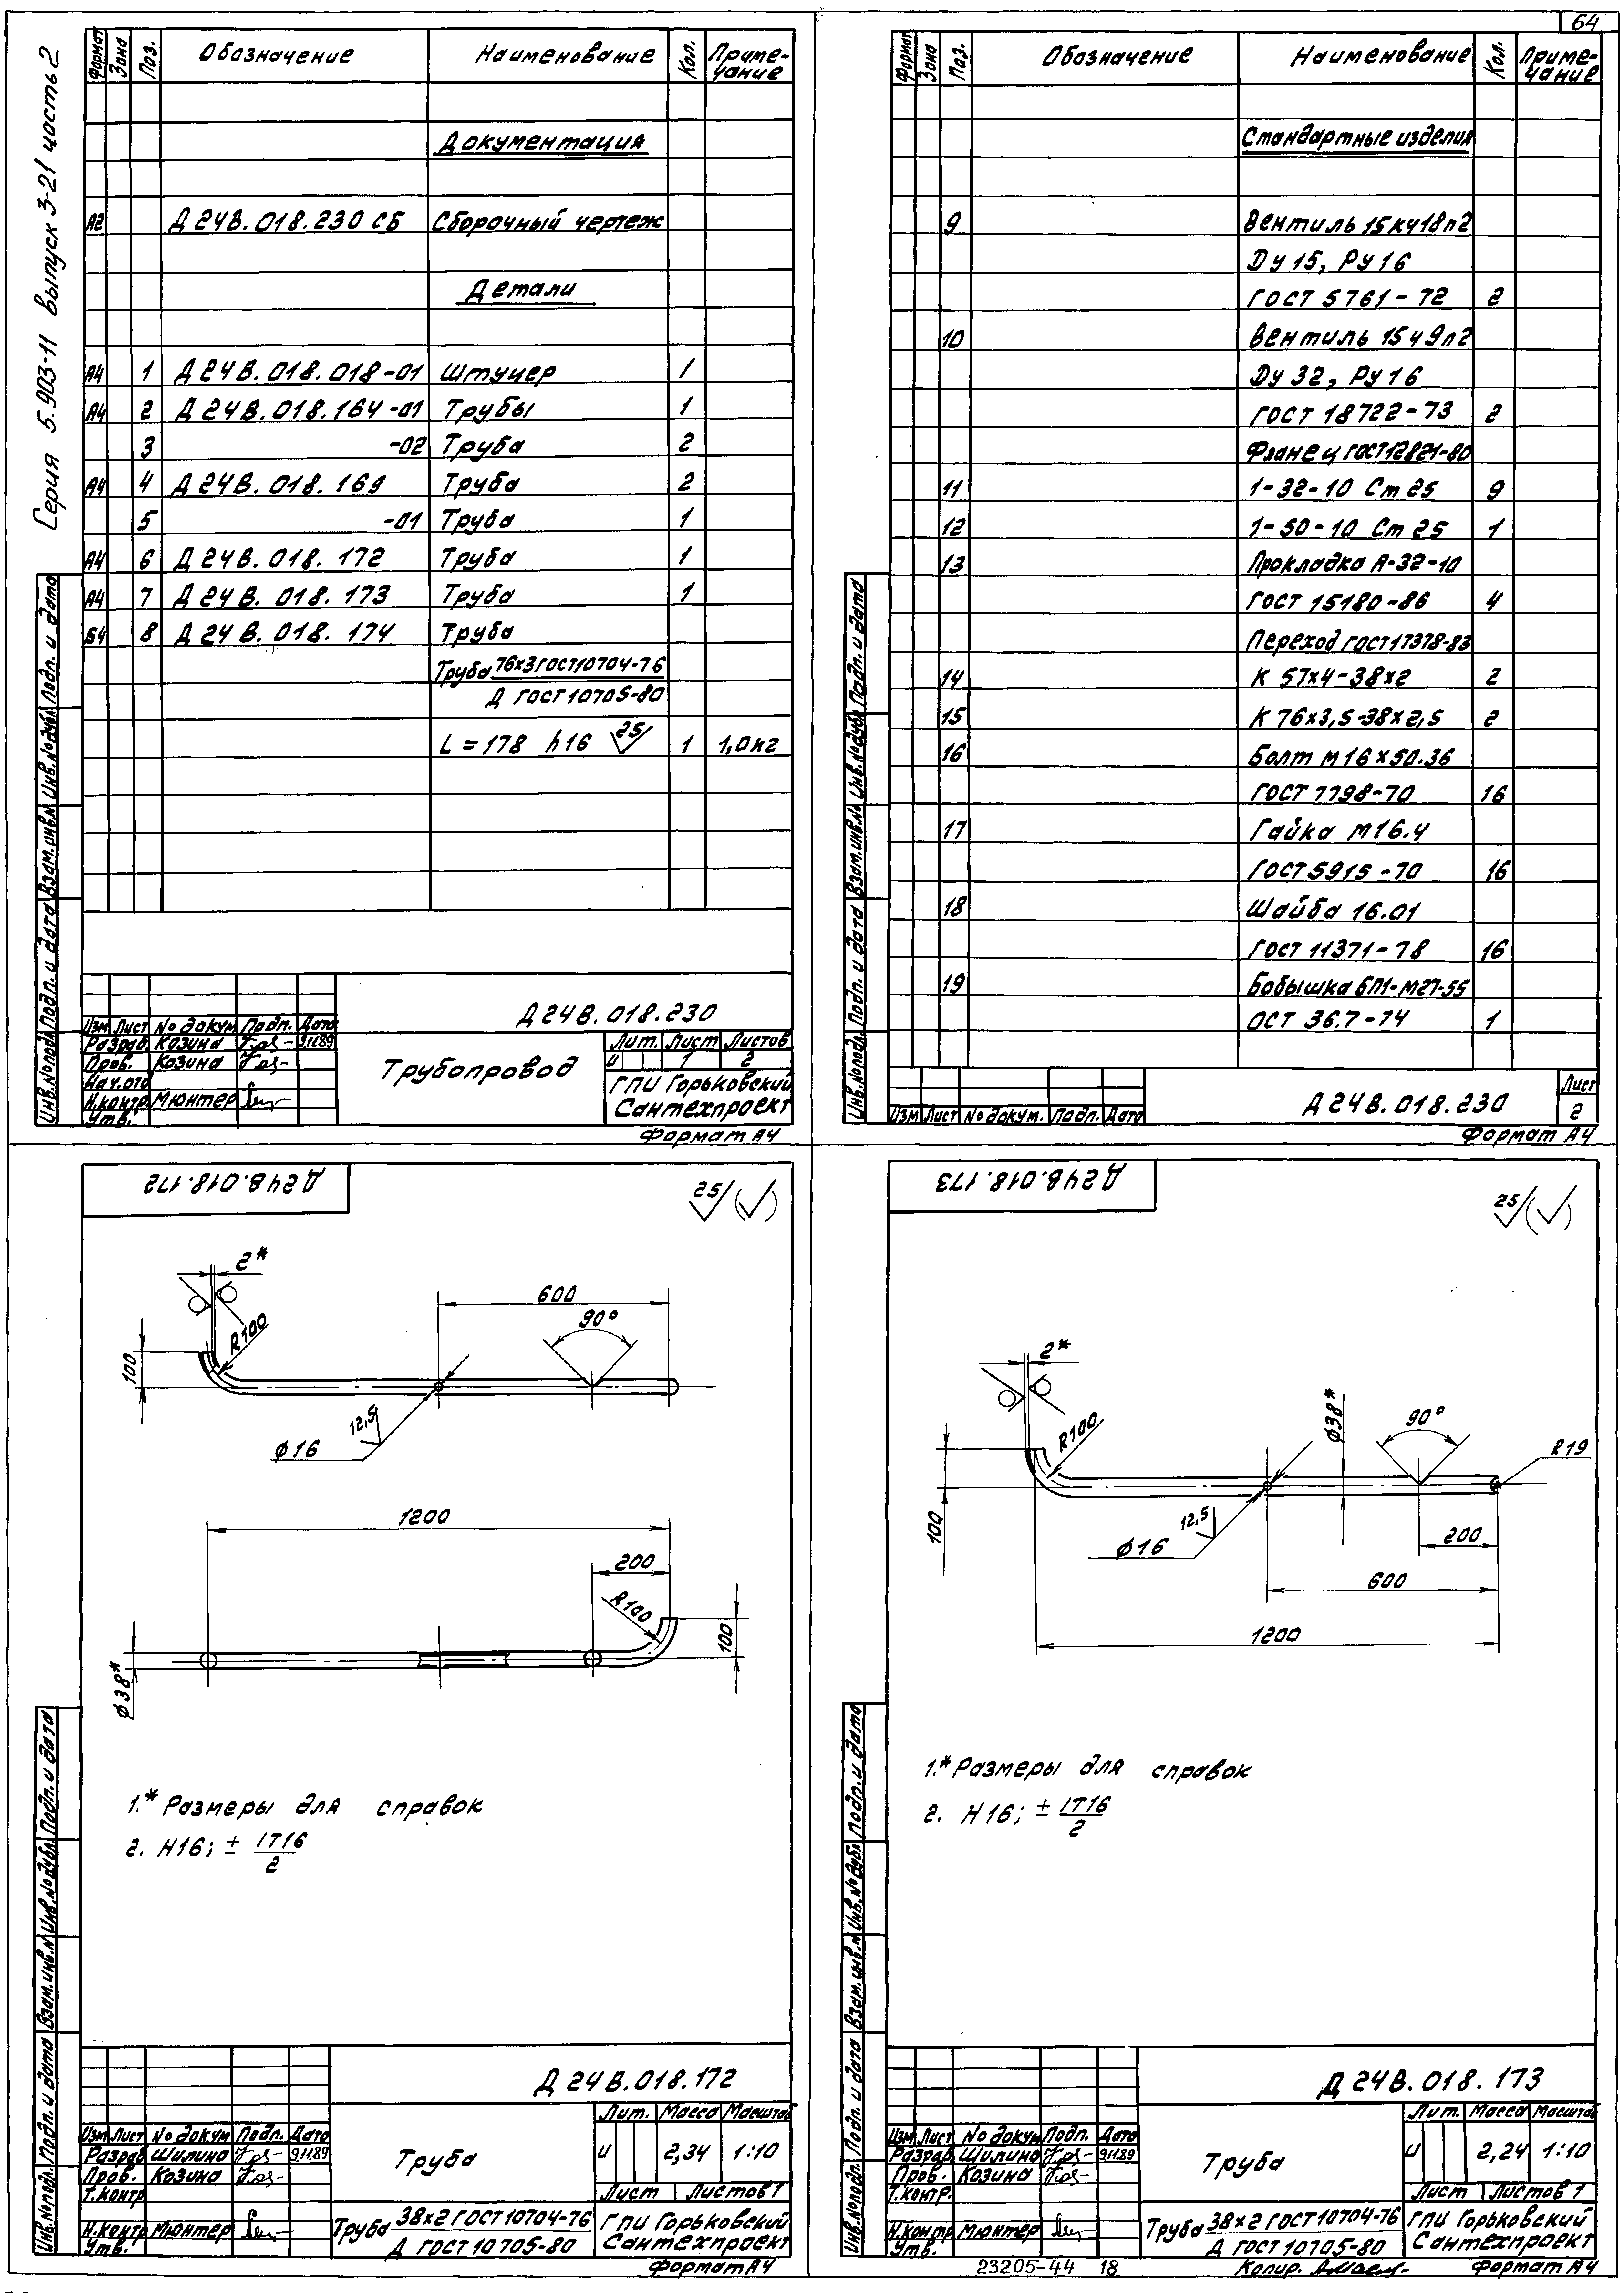 64
Серия 5.903-11 выпуск 3-21 часть 2
Формат Зона Поз. Обозначение Наименование Кол. Примечание
Документация
А2 Д24В.018.230 СБ Сборочный чертеж
Детали
А4 1 Д24В.018.018-01 Штуцер 1
А4 2 Д24В.018.164-01 Трубы 1
3 -02 Труба 2
А4 4 Д24В.018.169 Труба 2
5 -01 Труба 1
А4 6 Д24В.018.172 Труба 1
А4 7 Д24В.018.173 Труба 1
Б4 8 Д24В.018.174 Труба
Труба 76х3 ГОСТ 10704-76
Д ГОСТ 10705-80
L=178 h16 25 1 1,0кг
Инв.№подл. Подп. и дата Взам.инв.№ Инв.№дубл. Подп. и дата
Д24В.018.230
Изм Лист № докум Подп. Дата
Разраб. Козина 9.11.89
Пров. Козина
Нач.отд
Н.контр. Мюнтер
Утв.
Трубопровод
Лит. Лист Листов
И 1 2
ГПИ Горьковский
Сантехпроект
Формат А4
Формат Зона Поз. Обозначение Наименование Кол. Примечание
Стандартные изделия
9 Вентиль 15кч18п2
Ду 15, Ру 16
ГОСТ 5761-72 2
10 Вентиль 15ч9п2
Ду 32, Ру 16
ГОСТ 18722-73 2
Фланец ГОСТ 12821-80
11 1-32-10 Ст 25 9
12 1-50-10 Ст 25 1
13 Прокладка А-32-10
ГОСТ 15180-86 4
Переход ГОСТ 17378-83
14 К 57х4-38х2 2
15 К 76х3,5-38х2,5 2
16 Болт М16х50.36
ГОСТ 7798-70 16
17 Гайка М16.4
ГОСТ 5915-70 16
18 Шайба 16.01
ГОСТ 11371-78 16
19 Бобышка БП1-М27-55
ОСТ 36.7-74 1
Инв.№подл. Подп. и дата Взам.инв.№ Инв.№дубл. Подп. и дата
Изм Лист № докум. Подп. Дата
Д24В.018.230
Лист
2
Формат А4
Д24В.018.172
25
2*
600
90°
R100
100
12,5
φ16
1200
200
R100
100
φ38*
1.* Размеры для справок
2. Н16; ± IT16
2
Инв.№подл. Подп. и дата Взам.инв.№ Инв.№дубл. Подп. и дата
Д24В.018.172
Изм Лист № докум Подп. Дата
Разраб. Шилина 9.11.89
Пров. Козина
Т.контр
Н.контр Мюнтер
Утв.
Труба
Лит. Масса Масштаб
И 2,34 1:10
Лист Листов 1
Труба 38х2 ГОСТ 10704-76
Д ГОСТ 10705-80
ГПИ Горьковский
Сантехпроект
Формат А4
Д24В.018.173
25
2*
R100
φ38*
90°
R19
100
12,5
φ16
200
600
1200
1.* Размеры для справок
2. Н16; ± IT16
2
Инв.№подл. Подп. и дата Взам.инв.№ Инв.№дубл Подп. и дата
Д24В.018.173
Изм Лист № докум Подп. Дата
Разраб Шилина 9.11.89
Пров. Козина
Т.контр.
Н.контр Мюнтер
Утв.
Труба
Лит. Масса Масштаб
И 2,24 1:10
Лист Листов 1
Труба 38х2 ГОСТ 10704-76
Д ГОСТ 10705-80
ГПИ Горьковский
Сантехпроект
23205-44 18
Копир.
Формат А4